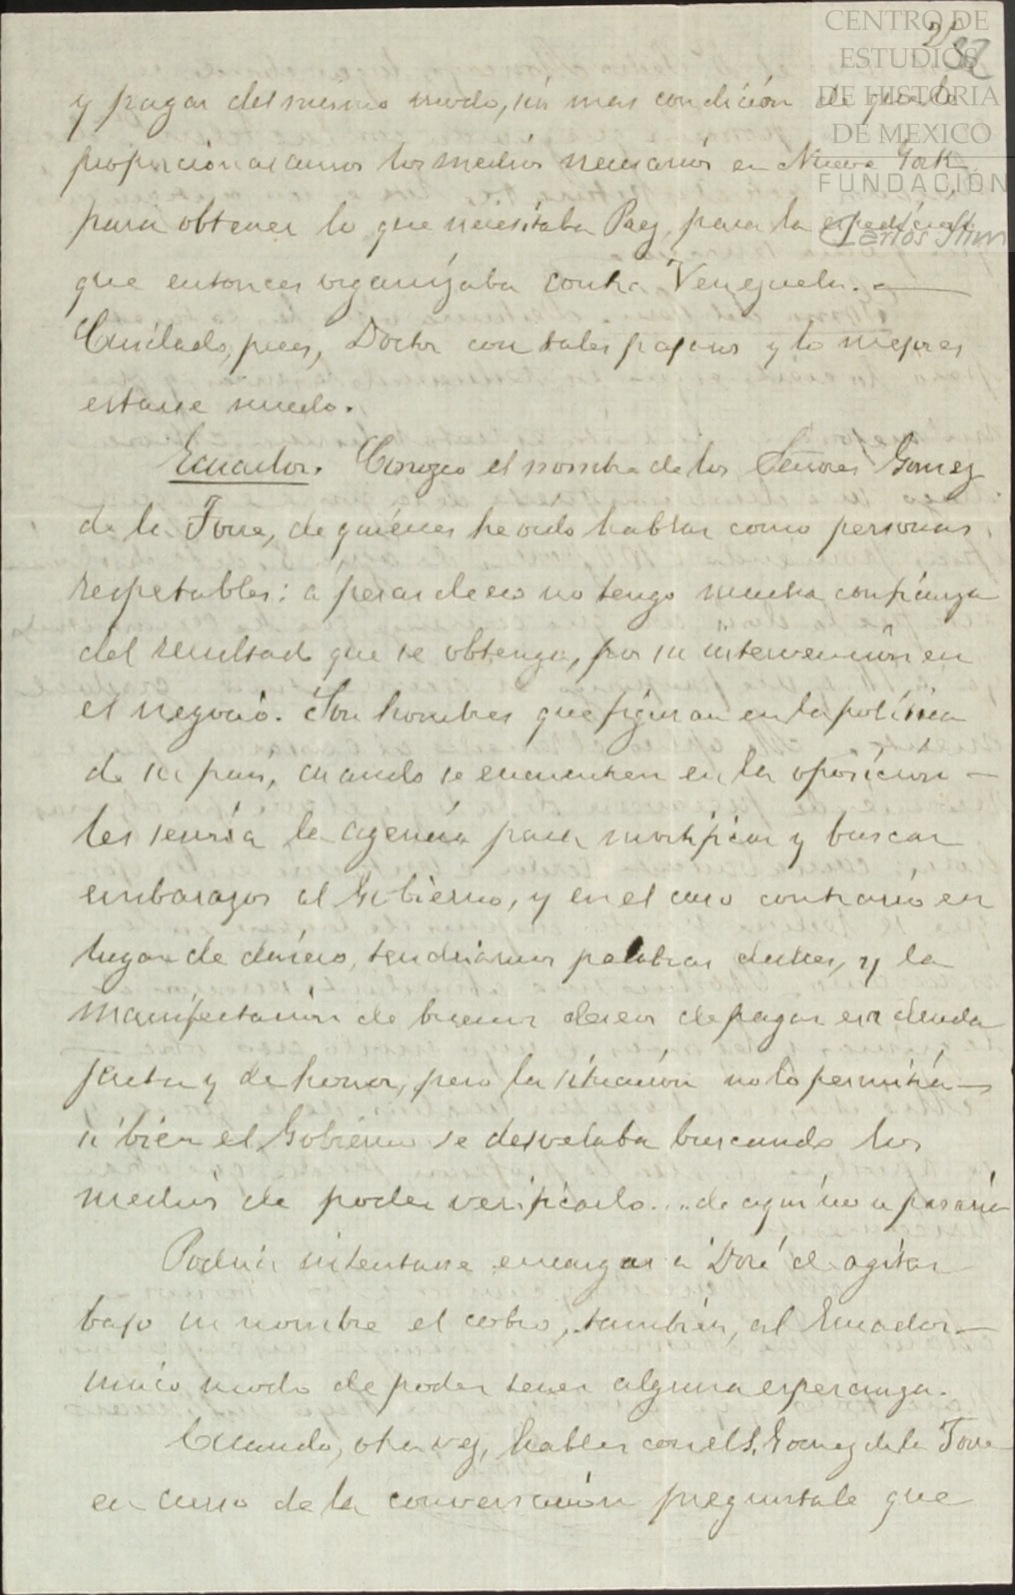 CENTRO DE
ESTUDIOS
DE HISTORIA
DE MEXICO
FUNDACIÓN
Carlos Slim
y pagar del mismo modo, sin mas condición de que le
proporcionaramos los medios necesarios en Nueva York
para obtener lo que necesitaba Paez para la expedición
que entonces organizaba contra Venezuela. —
Cuidado, pues, Doctor con tales pajaros y lo mejor es
estarse mudo.
Ecuador. Conozco el nombre de los Señores Gomez
de la Torre, de quiénes he oido hablar como personas
respetables: a pesar de eso no tengo mucha confianza
del resultado que se obtenga, por su intervención en
el negocio. Son hombres que figuran en la política
de su pais, cuando se encuentren en la oposicion —
les servirá la agencia para mortificar y buscar
embarazos al Gobierno, y en el caso contrario en
lugar de dinero, tendriamos palabras dulces, y la
manifestación de buenos deseos de pagar esa deuda
justa y de honor, pero la situación no lo permitía —
si bien el Gobierno se desvelaba buscando los
medios de poder verificarlo.... de aqui no se pasaria
Podria intentarse encargar á Doré de agitar
bajo su nombre el cobro, tambien, al Ecuador —
unico modo de poder tener alguna esperanza.
Cuando, otra vez, hables con el S. Gomez de la Torre
en curso de la conversación preguntale que